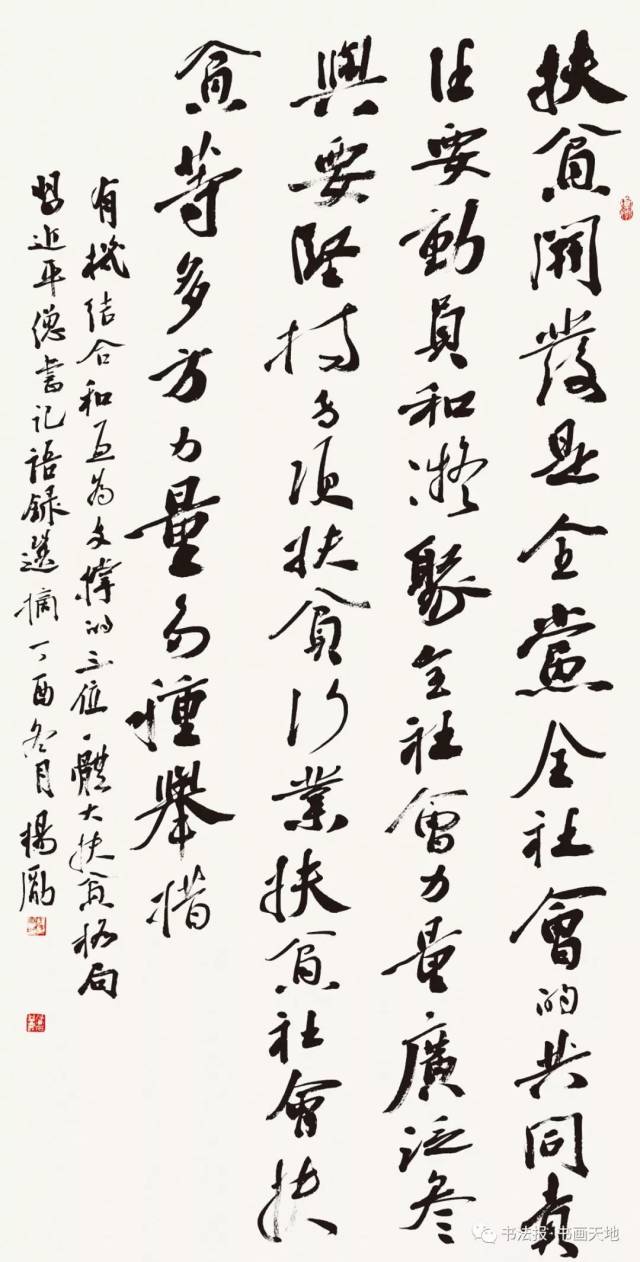 扶貧開發是全黨全社會的共同責
任要動員和凝聚全社會力量廣泛參
與要堅持專項扶貧行業扶貧社會扶
貧等多方力量多種舉措
有機結合和互為支撐的三位一體大扶貧格局
習近平總書記語錄選摘丁酉冬月楊勵
书法报·书画天地